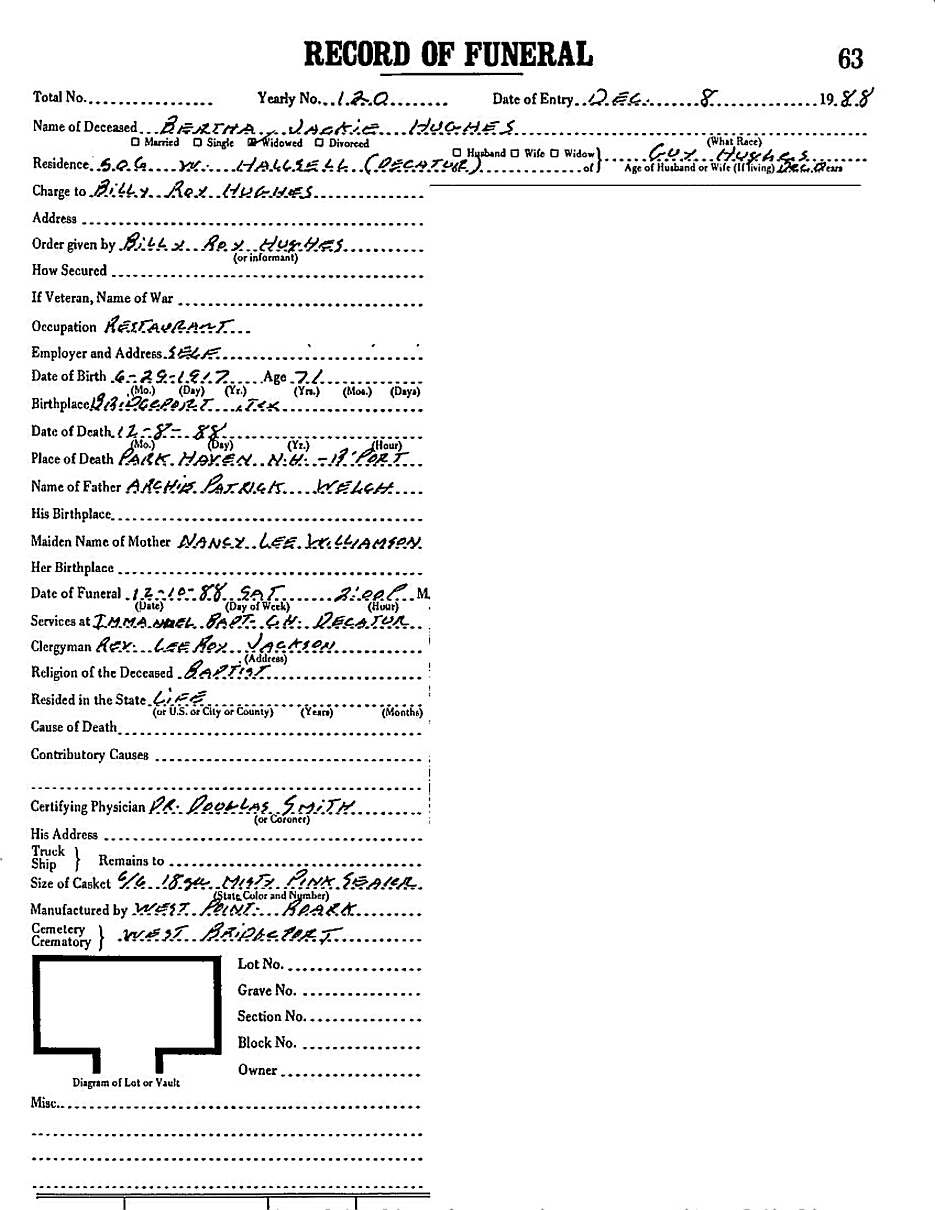 RECORD OF FUNERAL
63
Total No. Yearly No. 120 Date of Entry DEC. 8 1988
Name of Deceased BERTHA JACKIE HUGHES
☐ Married ☐ Single ☑ Widowed ☐ Divorced (What Race)
Residence 506 W. HALLSELL (DECATUR) ☐ Husband ☐ Wife ☐ Widow } of GUY HUGHES
Age of Husband or Wife (If living) DEC.D Years
Charge to BILLY ROY HUGHES
Address
Order given by BILLY ROY HUGHES
(or informant)
How Secured
If Veteran, Name of War
Occupation RESTAURANT
Employer and Address SELF
Date of Birth 6-29-1917 Age 71
(Mo.) (Day) (Yr.) (Yrs.) (Mos.) (Days)
Birthplace BRIDGEPORT, TEX
Date of Death 12-8-88
(Mo.) (Day) (Yr.) (Hour)
Place of Death PARK HAVEN N.H. - B'PORT
Name of Father ARCHIE PATRICK WELCH
His Birthplace
Maiden Name of Mother NANCY LEE WILLIAMSON
Her Birthplace
Date of Funeral 12-10-88 SAT 2:00 P M.
(Date) (Day of Week) (Hour)
Services at IMMANUEL BAPT. CH. DECATUR
Clergyman REV. LEE ROY JACKSON
(Address)
Religion of the Deceased BAPTIST
Resided in the State LIFE
(or U.S. or City or County) (Years) (Months)
Cause of Death
Contributory Causes
Certifying Physician DR. DOUGLAS SMITH
(or Coroner)
His Address
Truck
Ship } Remains to
Size of Casket 6/6 18 ga. MISTY PINK SEALER
(State Color and Number)
Manufactured by WEST POINT- ROARK
Cemetery
Crematory } WEST BRIDGEPORT
Lot No.
Grave No.
Section No.
Block No.
Owner
Diagram of Lot or Vault
Misc.